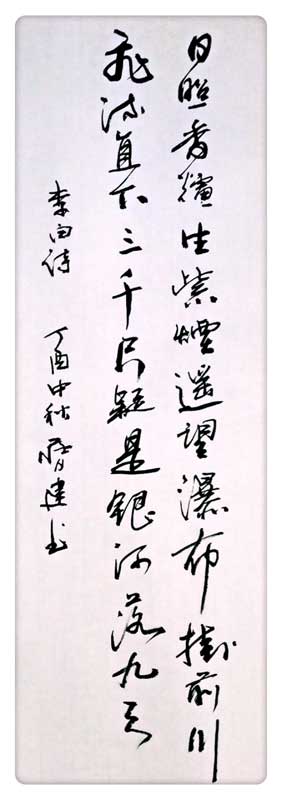 日照香爐生紫煙遥望瀑布掛前川
飛流直下三千尺疑是銀河落九天
李白诗 丁酉中秋 建书